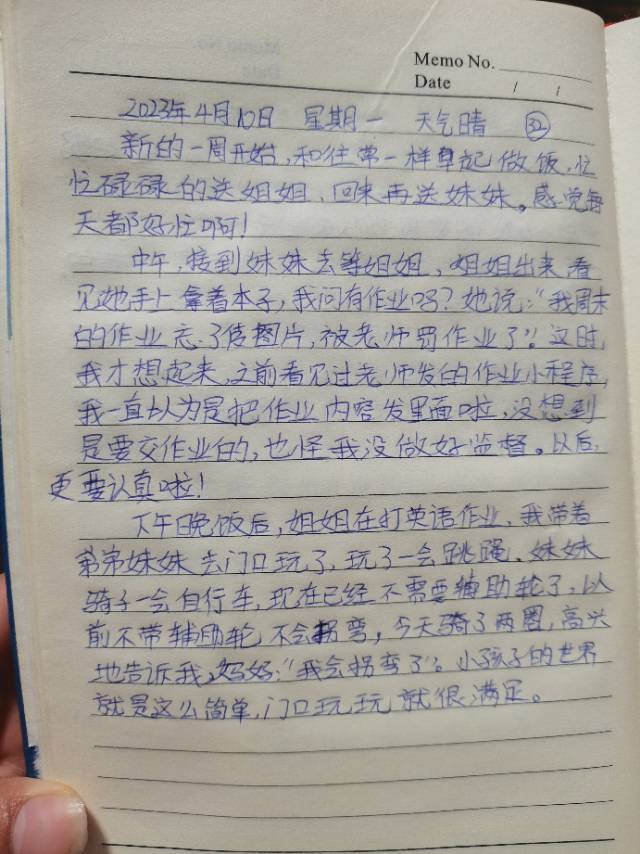 Memo No.
Date / /
2023年4月10日 星期一 天气晴 ㉜
新的一周开始,和往常一样早起做饭,忙
忙碌碌的送姐姐,回来再送妹妹。感觉每
天都好忙啊!
中午,接到妹妹去等姐姐,姐姐出来看
见她手上拿着本子,我问有作业吗?她说:“我周末
的作业忘了传图片,被老师罚作业了”。这时,
我才想起来,之前看见过老师发的作业小程序,
我一直以为是把作业内容发里面啦,没想到
是要交作业的,也怪我没做好监督。以后,
更要认真啦!
下午晚饭后,姐姐在打英语作业,我带着
弟弟妹妹去门口玩了,玩了一会跳绳,妹妹
骑了一会自行车,现在已经不需要辅助轮了,以
前不带辅助轮不会拐弯,今天骑了两圈,高兴
地告诉我,妈妈:“我会拐弯了”。小孩子的世界
就是这么简单,门口玩玩就很满足。